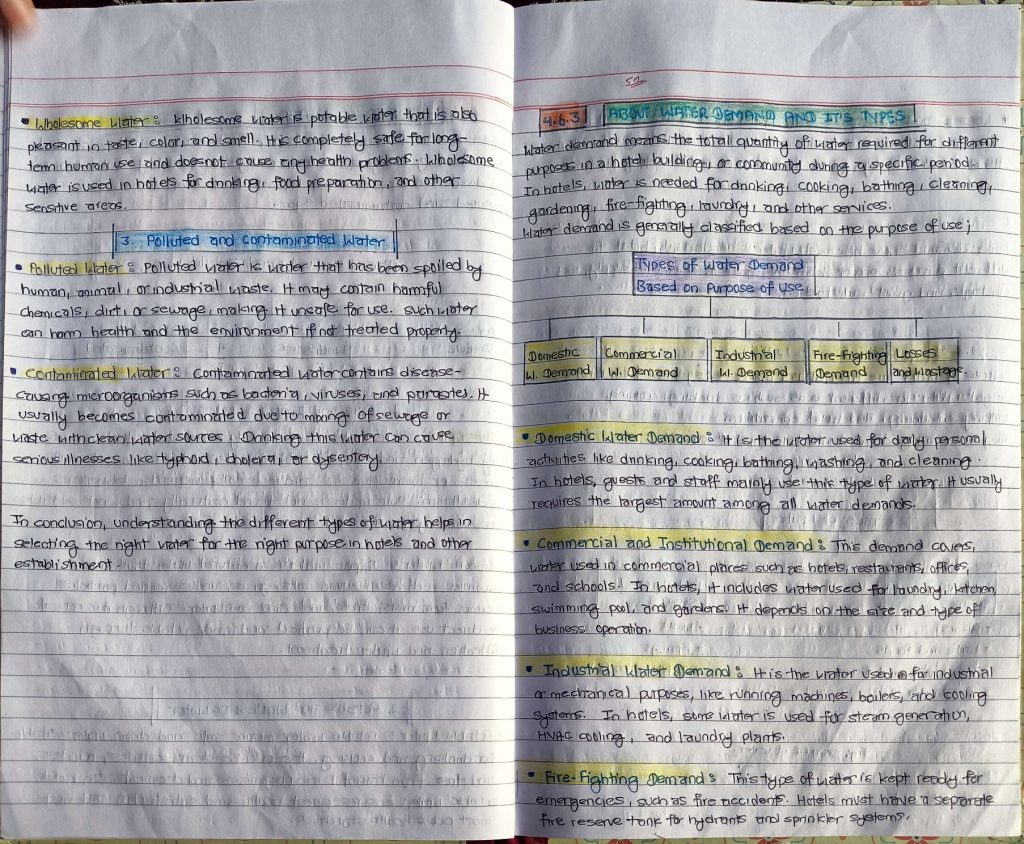 • Wholesome Water : Wholesome water is potable water that is also
pleasant in taste, color, and smell. It is completely safe for long-
term human use and does not cause any health problems. Wholesome
water is used in hotels for drinking, food preparation, and other
sensitive areas.
3. Polluted and contaminated Water
• Polluted Water : Polluted water is water that has been spoiled by
human, animal, or industrial waste. It may contain harmful
chemicals, dirt, or sewage, making it unsafe for use. Such water
can harm health and the environment if not treated properly.
• Contaminated Water : Contaminated water contains disease-
causing microorganisms such as bacteria, viruses, and parasites. It
usually becomes contaminated due to mixing of sewage or
waste with clean water sources. Drinking this water can cause
serious illnesses like typhoid, cholera, or dysentery.
In conclusion, understanding the different types of water helps in
selecting the right water for the right purpose in hotels and other
establishment.
4.6.3 ABOUT WATER DEMAND AND IT'S TYPES
Water demand means the total quantity of water required for different
purposes in a hotel, building, or community during a specific period.
In hotels, water is needed for drinking, cooking, bathing, cleaning,
gardening, fire-fighting, laundry, and other services.
Water demand is generally classified based on the purpose of use;
Types of Water Demand
Based on Purpose of Use
Domestic W. Demand
Commercial W. Demand
Industrial W. Demand
Fire-Fighting Demand
Losses and Wastage.
• Domestic Water Demand : It is the water used for daily personal
activities like drinking, cooking, bathing, washing, and cleaning.
In hotels, guests and staff mainly use this type of water. It usually
requires the largest amount among all water demands.
• Commercial and Institutional Demand : This demand covers,
water used in commercial places such as hotels, restaurants, offices,
and schools. In hotels, it includes water used for laundry, kitchen,
swimming pool, and gardens. It depends on the size and type of
business operation.
• Industrial Water Demand : It is the water used for industrial
or mechanical purposes, like running machines, boilers, and cooling
systems. In hotels, some water is used for steam generation,
HVAC cooling, and laundry plants.
• Fire-Fighting Demand : This type of water is kept ready for
emergencies, such as fire accident. Hotels must have a separate
fire reserve tank for hydrants and sprinkler systems.